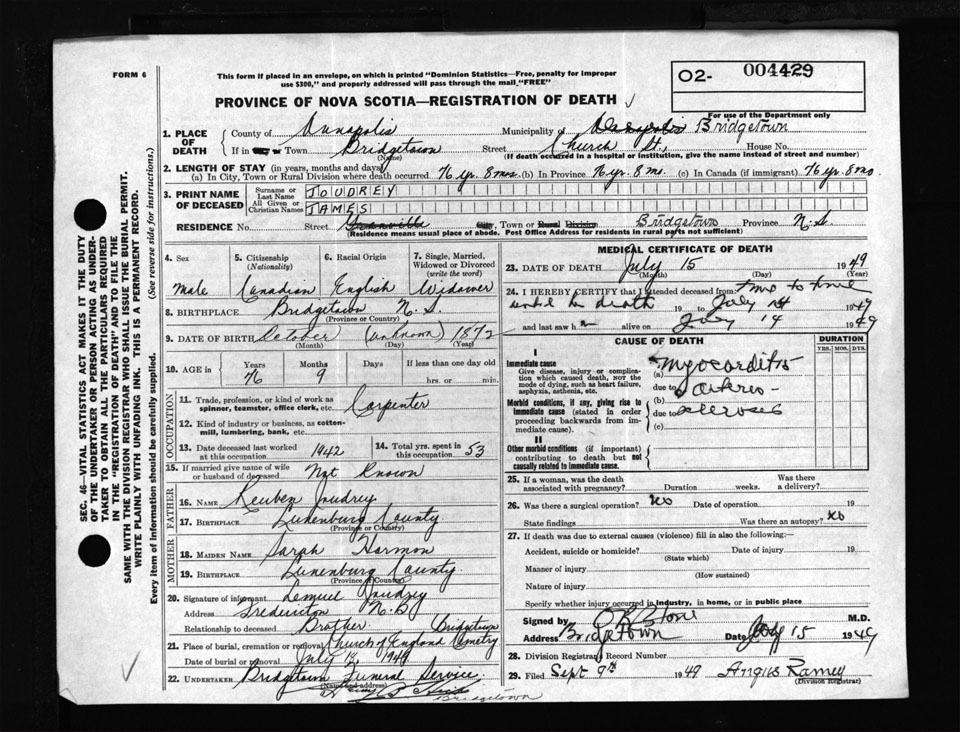 FORM 6
This form if placed in an envelope, on which is printed "Dominion Statistics—Free, penalty for improper
use $300," and properly addressed will pass through the mail "FREE"
O2- 004429
For use of the Department only
PROVINCE OF NOVA SCOTIA—REGISTRATION OF DEATH
1. PLACE OF DEATH County of Annapolis Municipality of Annapolis Bridgetown
If in Town Bridgetown (Name) Street Church St., House No.
(If death occurred in a hospital or institution, give the name instead of street and number)
2. LENGTH OF STAY (in years, months and days)
(a) In City, Town or Rural Division where death occurred 76 yr. 8 mos. (b) In Province 76 yr. 8 mo. (c) In Canada (if immigrant) 76 yr. 8 mo.
3. PRINT NAME OF DECEASED Surname or Last Name JOUDREY
All Given or Christian Names JAMES
RESIDENCE No. Street Granville City, Town or Rural Division Bridgetown Province N.S.
(Residence means usual place of abode. Post Office Address for residents in rural parts not sufficient)
SEC. 46—VITAL STATISTICS ACT MAKES IT THE DUTY
OF THE UNDERTAKER OR PERSON ACTING AS UNDER-
TAKER TO OBTAIN ALL THE PARTICULARS REQUIRED
IN THE "REGISTRATION OF DEATH" AND TO FILE THE
SAME WITH THE DIVISION REGISTRAR WHO SHALL ISSUE THE BURIAL PERMIT.
WRITE PLAINLY WITH UNFADING INK. THIS IS A PERMANENT RECORD.
Every item of information should be carefully supplied. (See reverse side for instructions.)
4. Sex 5. Citizenship (Nationality) 6. Racial Origin 7. Single, Married, Widowed or Divorced (write the word)
Male Canadian English Widower
8. BIRTHPLACE Bridgetown N.S.
(Province or Country)
9. DATE OF BIRTH October (unknown) 1872
(Month) (Day) (Year)
10. AGE in Years Months Days If less than one day old
76 9 hrs. or min.
OCCUPATION
11. Trade, profession, or kind of work as spinner, teamster, office clerk, etc. Carpenter
12. Kind of industry or business, as cotten-mill, lumbering, bank, etc.
13. Date deceased last worked at this occupation 1942 14. Total yrs. spent in this occupation 53
15. If married give name of wife or husband of deceased Not Known
FATHER
16. NAME Reuben Joudrey
17. BIRTHPLACE Lunenburg County
(Province or Country)
MOTHER
18. MAIDEN NAME Sarah Harmon
19. BIRTHPLACE Lunenburg County.
(Province or Country)
20. Signature of informant Lemuel Joudrey
Address Fredericton N.B
Relationship to deceased Brother
21. Place of burial, cremation or removal Church of England Cemetery Bridgetown
Date of burial or removal July 1949
22. UNDERTAKER Bridgetown Funeral Service
(Name and address)
Bridgetown
MEDICAL CERTIFICATE OF DEATH
23. DATE OF DEATH July 15 1949
(Month) (Day) (Year)
24. I HEREBY CERTIFY that I attended deceased from time to time
until his death 19 to July 14 1949
and last saw h alive on July 14 1949
CAUSE OF DEATH DURATION
YRS. MOS. DYS.
I
Immediate cause
Give disease, injury or complication which caused death, not the mode of dying, such as heart failure, asphyxia, asthenia, etc.
(a) Myocarditis
due to
Morbid conditions, if any, giving rise to immediate cause (stated in order proceeding backwards from immediate cause).
(b) Arterio-
due to sclerosis
(c)
II
Other morbid conditions (if important) contributing to death but not causally related to immediate cause.
25. If a woman, was the death associated with pregnancy? Duration weeks. Was there a delivery?
26. Was there a surgical operation? No Date of operation 19
State findings Was there an autopsy? No
27. If death was due to external causes (violence) fill in also the following:—
Accident, suicide or homicide? Date of injury 19
(State which)
Manner of injury
(How sustained)
Nature of injury
Specify whether injury occurred in industry, in home, or in public place
Signed by Stone M.D.
Address Bridgetown Date July 15 1949
28. Division Registrar's Record Number
29. Filed Sept 9th 1949 Angus Ramey
(Division Registrar)